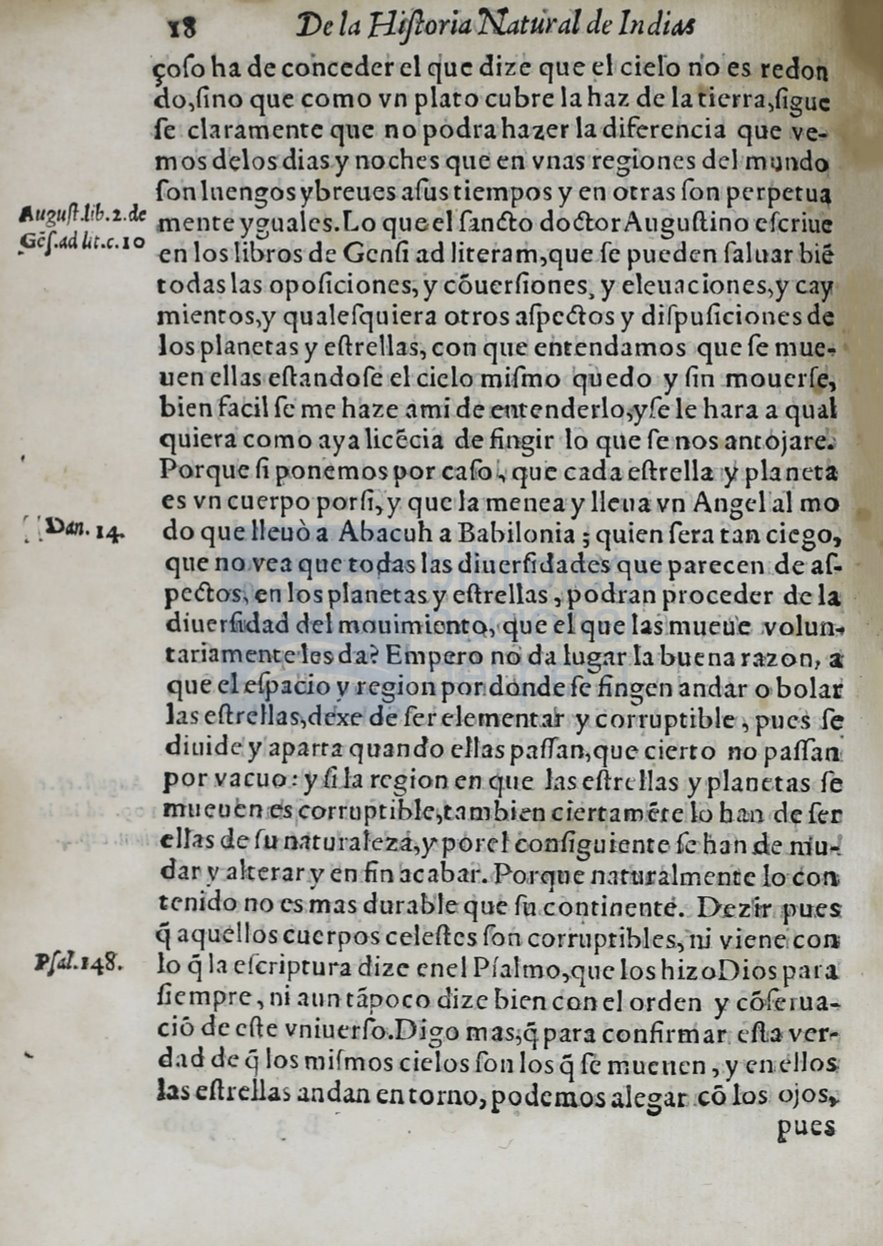 18 De la Hiſtoria Natural de Indias
çoſo ha de conceder el que dize que el cielo no es redon
do,ſino que como vn plato cubre la haz de la tierra,ſigue
ſe claramente que no podra hazer la diferencia que ve-
mos delos dias y noches que en vnas regiones del mundo
ſon luengos y breues aſus tiempos y en otras ſon perpetua
Auguſt.lib.2.de
mente yguales. Lo que el ſancto doctor Auguſtino eſcriue
Gēſ.ad lit.c.10
en los libros de Genſi ad literam,que ſe pueden ſaluar biē
todas las opoſiciones, y cōuerſiones, y eleuaciones,y cay
mientos,y qualeſquiera otros aſpectos y diſpuſiciones de
los planetas y eſtrellas, con que entendamos que ſe mue-
uen ellas eſtandoſe el cielo miſmo quedo y ſin mouerſe,
bien facil ſe me haze ami de entenderlo,y ſe le hara a qual
quiera como aya licēcia de fingir lo que ſe nos antojare.
Porque ſi ponemos por caſo, que cada eſtrella y planeta
es vn cuerpo porſi, y que la menea y lleua vn Angel al mo
Dan. 14.
do que lleuò a Abacuh a Babilonia ; quien ſera tan ciego,
que no vea que todas las diuerſidades que parecen de aſ-
pectos, en los planetas y eſtrellas, podran proceder de la
diuerſidad del mouimiento, que el que las mueue volun-
tariamente les da? Empero no da lugar la buena razon, a
que el eſpacio y region por donde ſe fingen andar o bolar
las eſtrellas,dexe de ſer elementar y corruptible, pues ſe
diuide y aparta quando ellas paſſan,que cierto no paſſan
por vacuo: y ſi la region en que las eſtrellas y planetas ſe
mueuen es corruptible,tambien ciertamēte lo han de ſer
ellas de ſu naturaleza,y por el conſiguiente ſe han de mu-
dar y alterar y en fin acabar. Porque naturalmente lo con
tenido no es mas durable que ſu continente. Dezir pues
q̄ aquellos cuerpos celeſtes ſon corruptibles, ni viene con
Pſal.148.
lo q̄ la eſcriptura dize enel Pſalmo,que los hizo Dios para
ſiempre, ni aun tāpoco dize bien con el orden y cōſerua-
ciō de eſte vniuerſo. Digo mas,q̄ para confirmar eſta ver-
dad de q̄ los miſmos cielos ſon los q̄ ſe mueuen, y en ellos
las eſtrellas andan en torno, podemos alegar cō los ojos,
pues